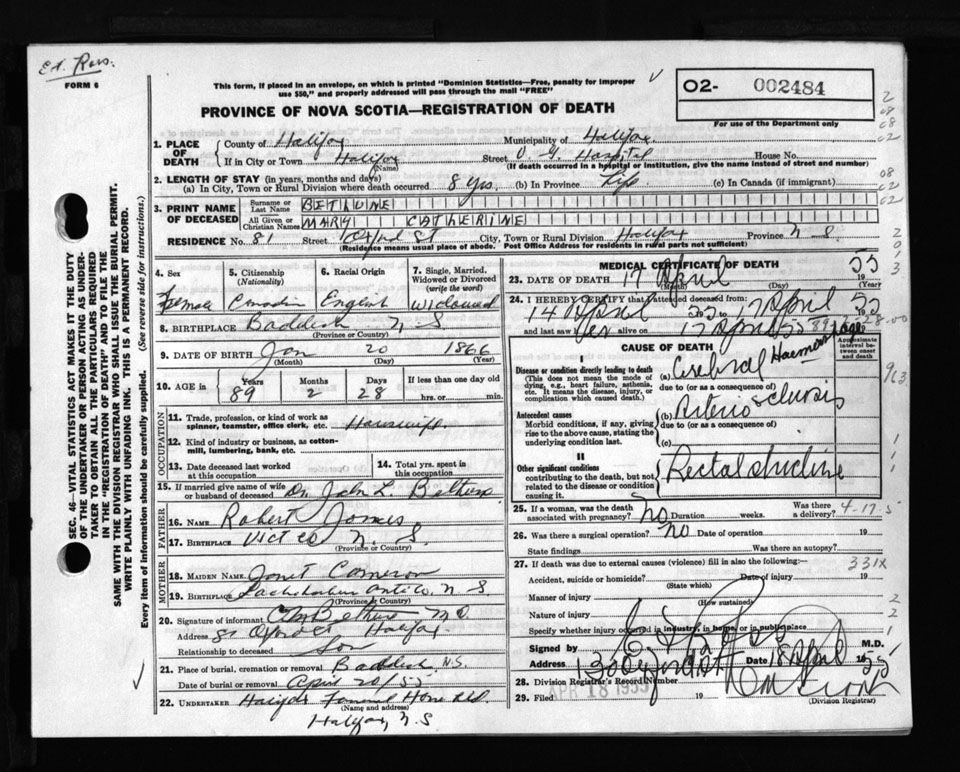 Ex. Ross.
FORM 6
This form, if placed in an envelope, on which is printed "Dominion Statistics—Free, penalty for improper
use $50," and properly addressed will pass through the mail "FREE"
02- 002484
For use of the Department only
PROVINCE OF NOVA SCOTIA—REGISTRATION OF DEATH
1. PLACE OF DEATH
County of Halifax Municipality of Halifax
If in City or Town Halifax Street V. G. Hospital House No.
(Name) (If death occurred in a hospital or institution, give the name instead of street and number)
2. LENGTH OF STAY (in years, months and days)
(a) In City, Town or Rural Division where death occurred 8 yrs. (b) In Province Life (c) In Canada (if immigrant)
3. PRINT NAME OF DECEASED
Surname or Last Name BETHUNE
All Given or Christian Names MARY CATHERINE
RESIDENCE No. 81 Street Oxford St City, Town or Rural Division Halifax Province N S
(Residence means usual place of abode. Post Office Address for residents in rural parts not sufficient)
4. Sex Female
5. Citizenship (Nationality) Canadian
6. Racial Origin English
7. Single, Married, Widowed or Divorced (write the word) Widowed
8. BIRTHPLACE Baddeck N. S
(Province or Country)
9. DATE OF BIRTH Jan 20 1866
(Month) (Day) (Year)
10. AGE in Years 89 Months 2 Days 28 If less than one day old
hrs. or min.
OCCUPATION
11. Trade, profession, or kind of work as
spinner, teamster, office clerk, etc. Housewife
12. Kind of industry or business, as cotton-
mill, lumbering, bank, etc.
13. Date deceased last worked
at this occupation
14. Total yrs. spent in
this occupation
15. If married give name of wife
or husband of deceased Dr. John L. Bethune
FATHER
16. NAME Robert Jones
17. BIRTHPLACE Vict Co N. S
(Province or Country)
MOTHER
18. MAIDEN NAME Janet Cameron
19. BIRTHPLACE N S
(Province or Country)
20. Signature of informant Bethune M.D.
Address 81 Oxford St Halifax
Relationship to deceased Son
21. Place of burial, cremation or removal Baddeck N.S.
Date of burial or removal April 20/55
22. UNDERTAKER Halifax Funeral Home Ltd.
(Name and address)
Halifax, N. S
MEDICAL CERTIFICATE OF DEATH
23. DATE OF DEATH 17 April 19 55
(Month) (Day) (Year)
24. I HEREBY CERTIFY that I attended deceased from
14 April 55 to 17 April 55
and last saw her alive on 17 April 55
CAUSE OF DEATH
Approximate interval between onset and death
I
Disease or condition directly leading to death
(This does not mean the mode of dying, e.g., heart failure, asthenia, etc. It means the disease, injury, or complication which caused death.)
(a) Cerebral Haemorr
due to (or as a consequence of)
Antecedent causes
Morbid conditions, if any, giving rise to the above cause, stating the underlying condition last.
(b) Arterio sclerosis
due to (or as a consequence of)
(c)
II
Other significant conditions
contributing to the death, but not related to the disease or condition causing it.
Rectal stricture
25. If a woman, was the death
associated with pregnancy? No Duration weeks. Was there a delivery?
4-17-5
26. Was there a surgical operation? No Date of operation 19
State findings Was there an autopsy?
27. If death was due to external causes (violence) fill in also the following:— 331x
Accident, suicide or homicide? Date of injury 19
(State which)
Manner of injury
(How sustained)
Nature of injury
Specify whether injury occurred in industry, in home, or in public place
Signed by Ross M.D.
Address Date 18 April 1955
28. Division Registrar's Record Number
29. Filed APR 18 1955 19
(Division Registrar)
SEC. 46—VITAL STATISTICS ACT MAKES IT THE DUTY
OF THE UNDERTAKER OR PERSON ACTING AS UNDER-
TAKER TO OBTAIN ALL THE PARTICULARS REQUIRED
IN THE "REGISTRATION OF DEATH" AND TO FILE THE
SAME WITH THE DIVISION REGISTRAR WHO SHALL ISSUE THE BURIAL PERMIT.
WRITE PLAINLY WITH UNFADING INK. THIS IS A PERMANENT RECORD.
Every item of information should be carefully supplied. (See reverse side for instructions.)